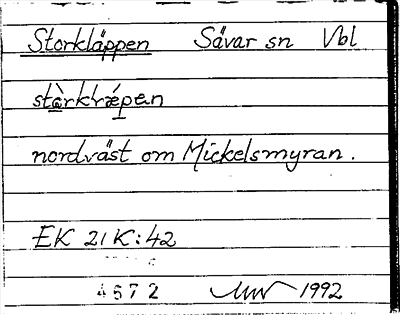 Storkläppen Sävar sn Vbl
nordväst om Mickelsmyran.
EK 21K:42
4672 1992